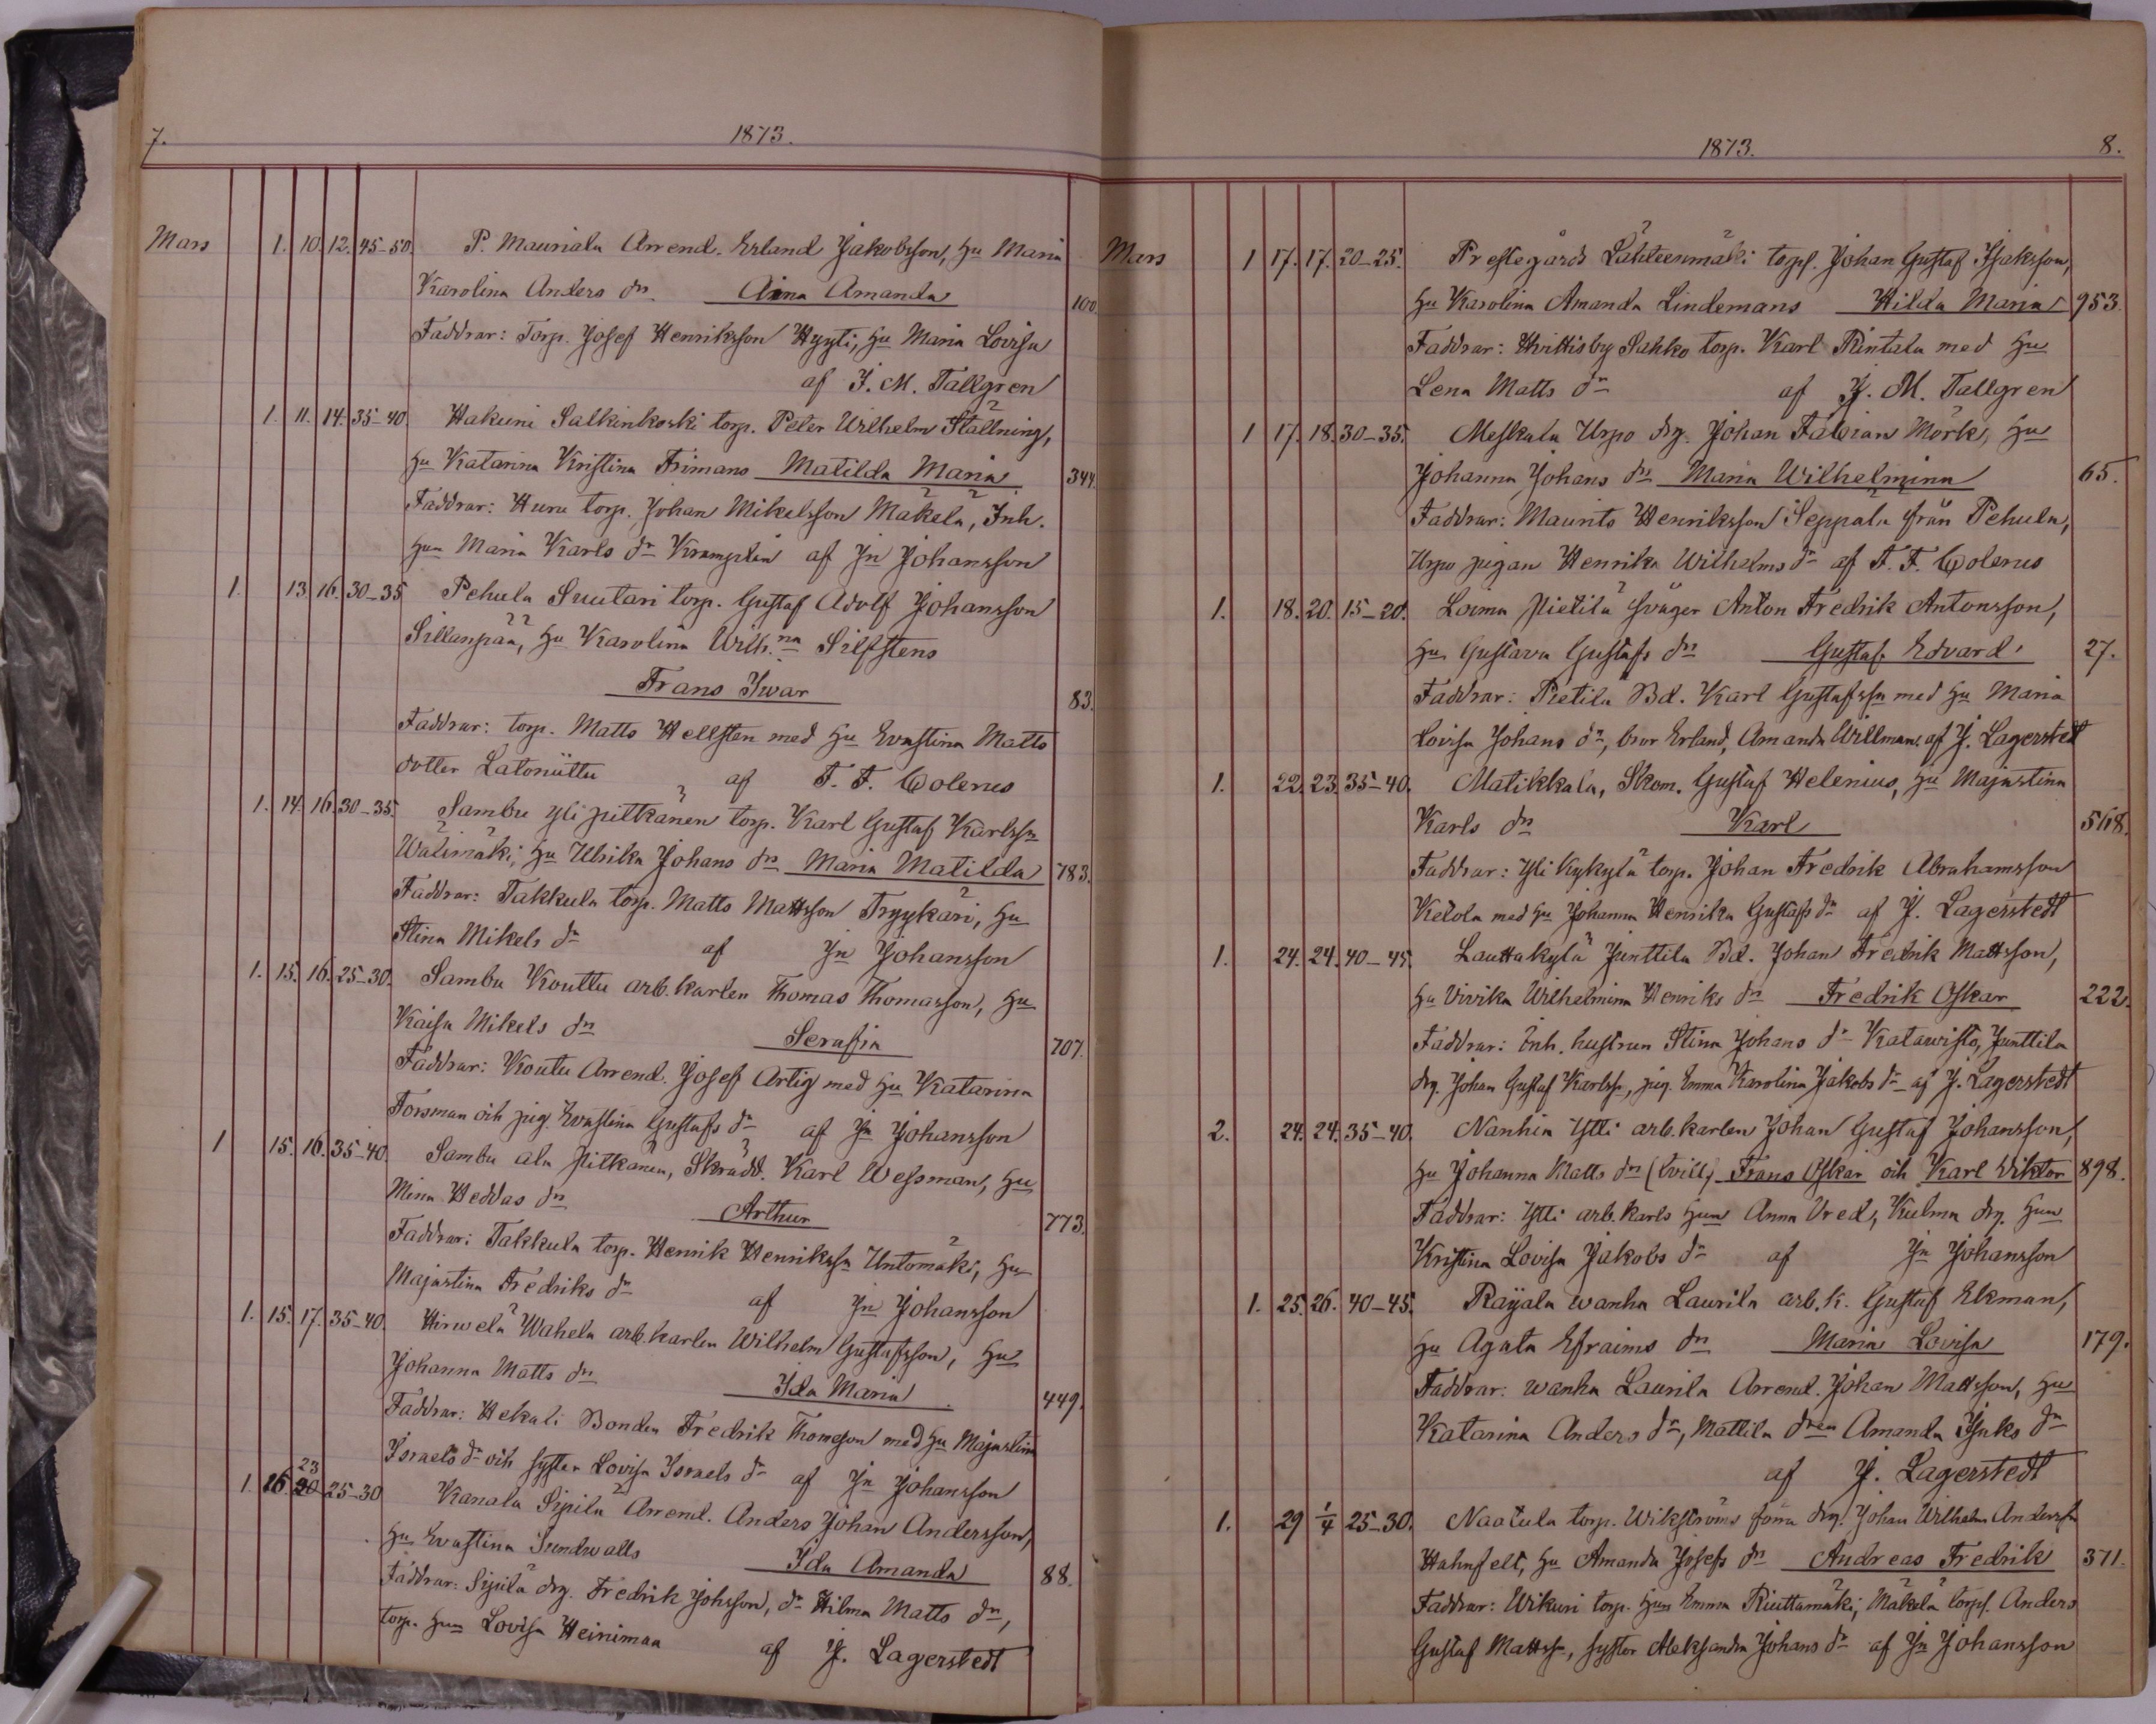 7.
1873.
Mars 1. 10. 12. 45-50. P. Mauriala Arrend. Erland Jakobsson, Hu Maria
Karolina Anders dr. Aina Amanda 100.
Faddrar: Torp. Josef Henriksson Hyyti, Hu Maria Lovisa
af J. M. Tallgren
1. 11. 14. 35-40. Hakuni Salkinkoski torp. Peter Wilhelm Ställning,
Hu Katarina Kristina Frimans Matilda Maria 344.
Faddrar: Huru torp. Johan Mikelsson Mäkelä, Inh.
Hun Maria Karls dr af Jn Johansson
1. 13. 16. 30-35 Pehula Suutari torp. Gustaf Adolf Johansson
Sillanpää, Hu Karolina Wilh.na Silfstens
Frans Iwar 83.
Faddrar: torp. Matts Hellsten med Hu Evastina Matts
dotter Latoniittu af F. F. Colerus
1. 14. 16. 30-35. Sambu Yli pitkänen torp. Karl Gustaf Karlssn
Wälimäki, Hu Ulrika Johans dr Maria Matilda 783.
Faddrar: Takkula torp. Matts Mattsson Hu
Stina Mikels dr af Jn Johansson
1. 15. 16. 25-30. Sambu Kouttu arb.karlen Thomas Thomasson, Hu
Kaisa Mikels dr Serafia 707.
Faddrar: Koutu Arrend. Josef Artig med Hu Katarina
Forsman och pig. Evastina Gustafs dr af Jn Johansson
1 15. 16. 35-40. Sambu ala pitkänen, Skrädd. Karl Wessman, Hu
Mina Heddas dr Arthur 773.
Faddrar: Takkula torp. Henrik Henrikssn Untomäki, Hu
Majastina Fredriks dr af Jn Johansson
1. 15. 17. 35-40. Hirwelä Wahela arb.karlen Wilhelm Gustafsson, Hu
Johanna Matts dr Ida Maria 449.
Faddrar: Hekali Bonden Fredrik Thomsson med Hu Majastina
Israels dr och syster Lovisa Israels dr af Jn Johansson
1. 16. 23 25-30 Kanala Sipilä Arrend. Anders Johan Andersson,
Hu Evastina Sundwalls Ida Amanda 88.
Faddrar: Sipilä drg. Fredrik Johsson, dr Hilma Matts dr,
torp. Hun Lovisa Heinimaa af J. Lagerstedt
1873.
8.
Mars 1 17. 17. 20-25. Prestegårds Lähteenmäki torps. Johan Gustaf Isaksson,
Hu Karolina Amanda Lindemans Hilda Maria 953.
Faddrar: Hvittisby Sahko torp. Karl Rintala med Hu
Lena Matts dr af J. M. Tallgren
1 17. 18. 30-35. Meskala Urpo drg. Johan Fabian Mörk, Hu
Johanna Johans dr Maria Wilhelmina 65.
Faddrar: Maurits Henriksson Seppälä från Pehula,
Urpo pigan Henrika Wilhelms dr af F. F. Colerus
1. 18. 20. 15-20. Loima Pietilä svåger Anton Fredrik Antonsson,
Hu Gustava Gustafs dr Gustaf Edvard 27.
Faddrar: Pietilä Bd. Karl Gustafssn med Hu Maria
Lovisa Johans dr, bror Erland, Amanda Willman. af J. Lagerstedt
1. 22. 23. 35-40. Matikkala, Skom. Gustaf Helenius, Hu Majastina
Karls dr Karl 568.
Faddrar: Yli Kykylä torp. Johan Fredrik Abrahamsson
Ketola med Hu Johanna Henrika Gustafs dr af J. Lagerstedt
1. 24. 24. 40-45. Lauttakylä Junttila Bd. Johan Fredrik Mattsson,
Hu Vivika Wilhelmina Henriks dr Fredrik Oskar 222.
Faddrar: Inh. hustrun Stina Johans dr Katawisto, Junttila
drg. Johan Gustaf Karlssn, pig. Emma Karolina Jakobs dr af J. Lagerstedt
2. 24. 24. 35-40. Nanhia Ytti arb.karlen Johan Gustaf Johansson,
Hu Johanna Matts dr (tvill) Frans Oskar och Karl Viktor 898.
Faddrar: Ytti arb.karls Hun Anna Vred, Kulma drg. Hun
Kristina Lovisa Jakobs dr af Jn Johansson
1. 25. 26. 40-45. Raijala wanha Laurila arb.k. Gustaf Ekman,
Hu Agata Efraims dr Maria Lovisa 179.
Faddrar: wanha Laurila Arrend. Johan Mattsson, Hu
Katarina Anders dr, Mattila dren Amanda Isaks dr
af J. Lagerstedt
1. 29 1/4 25-30. Naatula torp. Wikströms förra drg. Johan Wilhelm Anderssn
Hahnfelt, Hu Amanda Josefs dr Andreas Fredrik 371.
Faddrar: Wikuri torp. Hun Emma Riuttamäki, Mäkelä torps. Anders
Gustaf Mattssn, syster Aleksandra Johans dr af Jn Johansson